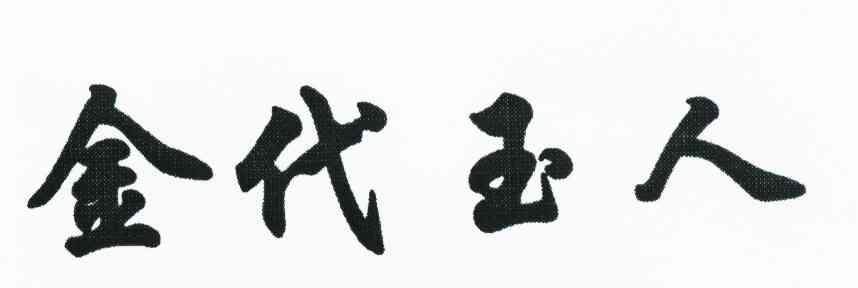 金代玉人